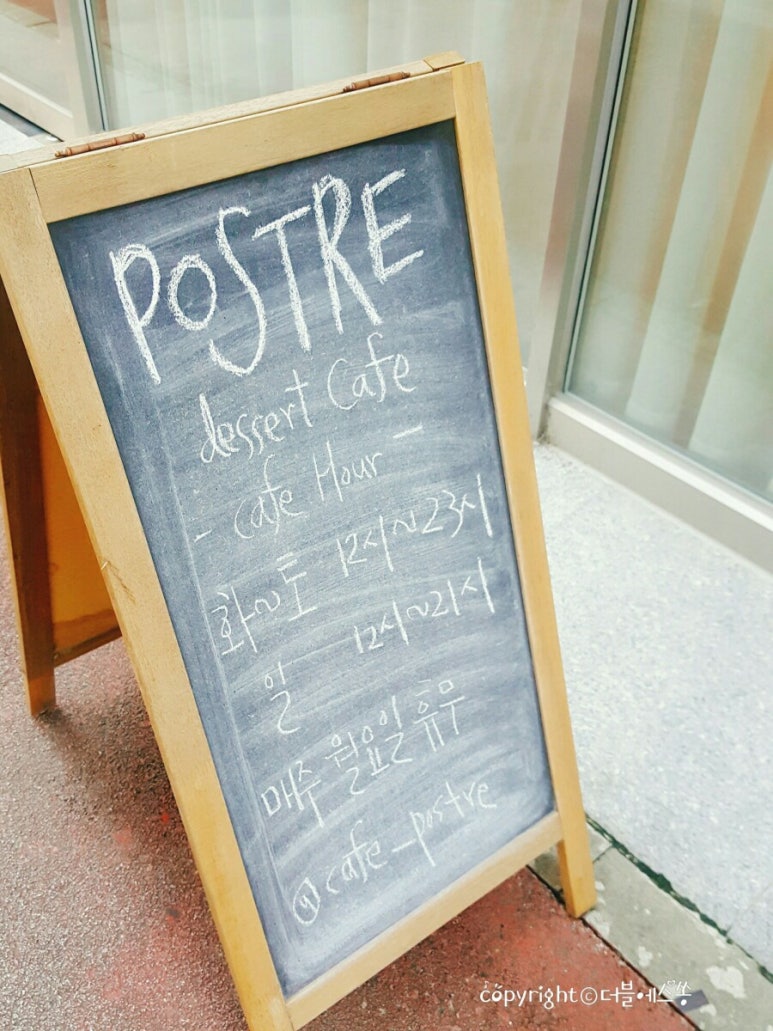 POSTRE
dessert Cafe
- Cafe Hour -
화~토 12시~23시
일 12시~21시
매주 월요일 휴무
@cafe_postre
copyright ⓒ 더블·에스쏭